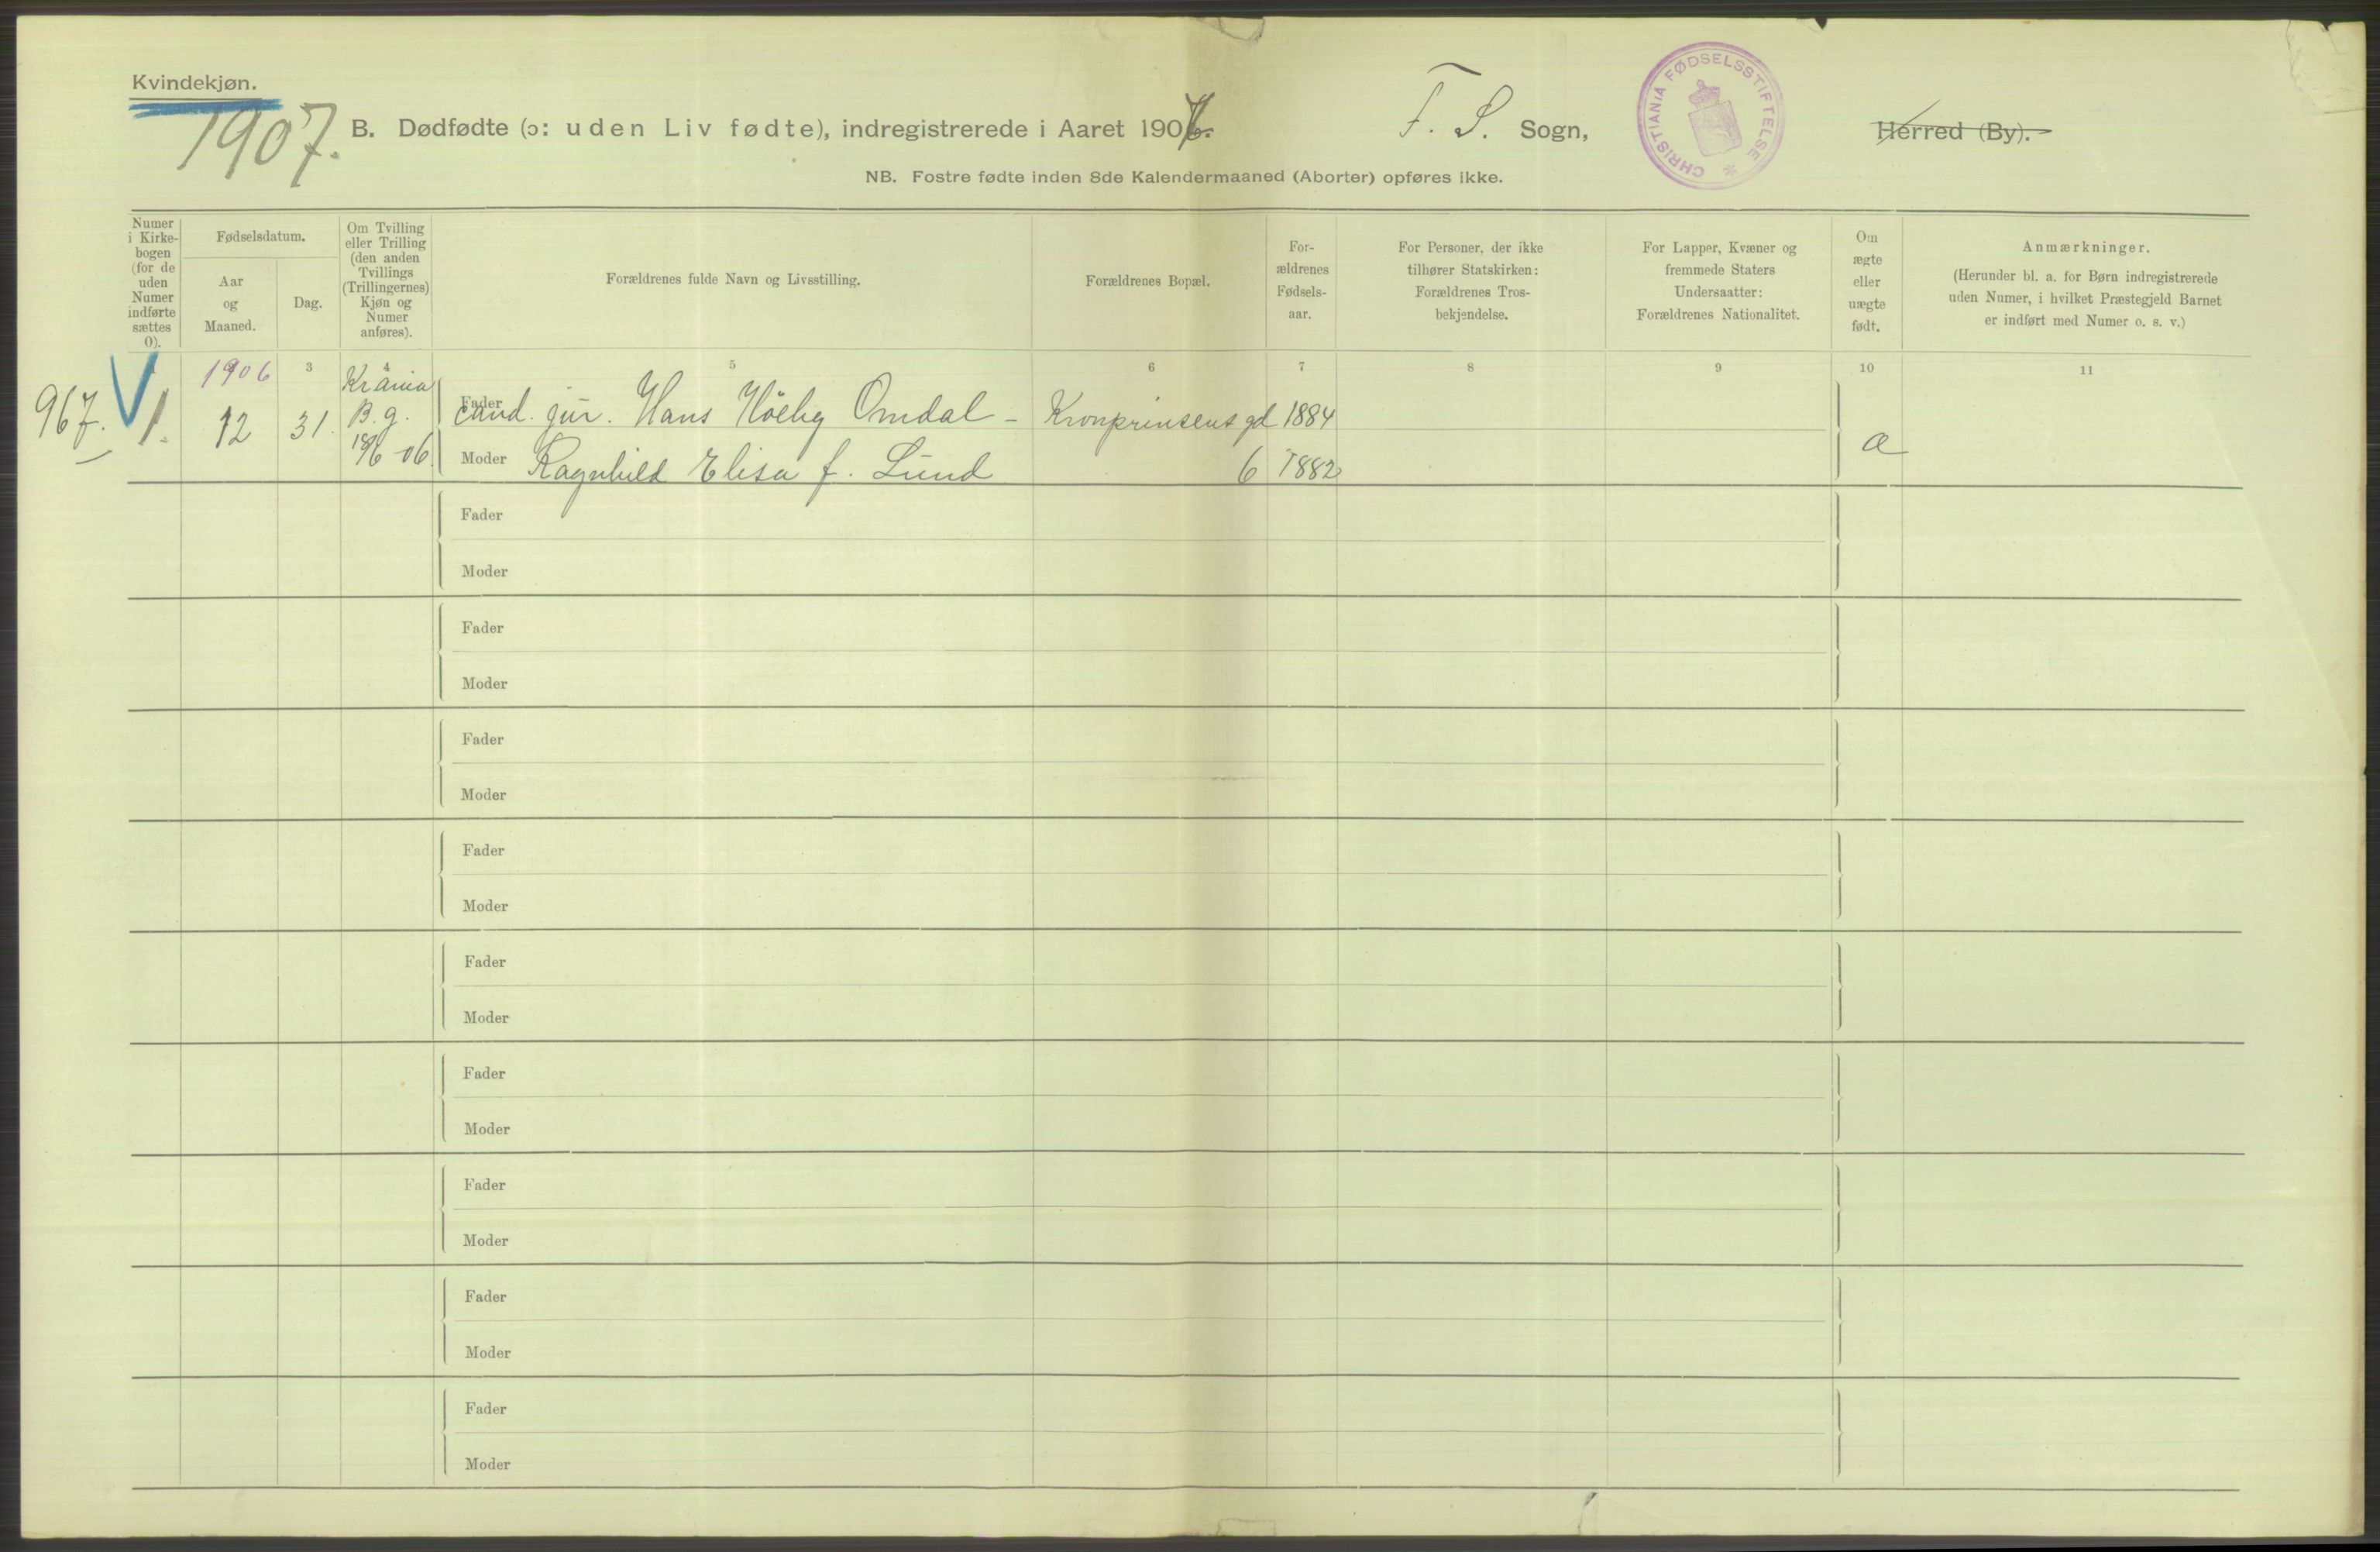 Kvindekjøn.
1907.
B. Dødfødte (ɔ: uden Liv fødte), indregistrerede i Aaret 1907.
F. S. Sogn,
CHRISTIANIA FØDSELSSTIFTELSE *
Herred (By).
NB. Fostre fødte inden 8de Kalendermaaned (Aborter) opføres ikke.
Numer
i Kirke-
bogen
(for de
uden
Numer
indførte
sættes
0).
Fødselsdatum.
Aar
og
Maaned.
Dag.
Om Tvilling
eller Trilling
(den anden
Tvillings
(Trillingernes)
Kjøn og
Numer
anføres).
Forældrenes fulde Navn og Livsstilling.
Forældrenes Bopæl.
For-
ældrenes
Fødsels-
aar.
For Personer, der ikke
tilhører Statskirken:
Forældrenes Tros-
bekjendelse.
For Lapper, Kvæner og
fremmede Staters
Undersaatter:
Forældrenes Nationalitet.
Om
ægte
eller
uægte
født.
Anmærkninger.
(Herunder bl. a. for Børn indregistrerede
uden Numer, i hvilket Præstegjeld Barnet
er indført med Numer o. s. v.)
3 4 5 6 7 8 9 10 11
967. 1.
1906
12 31.
Krania
B. g.
06.
Fader cand. jur. Hans Omdal - Kronprinsens gd 1884
Moder Ragnhild Elisa f. Lund 6 1882
a
Fader
Moder
Fader
Moder
Fader
Moder
Fader
Moder
Fader
Moder
Fader
Moder
Fader
Moder
Fader
Moder
Fader
Moder